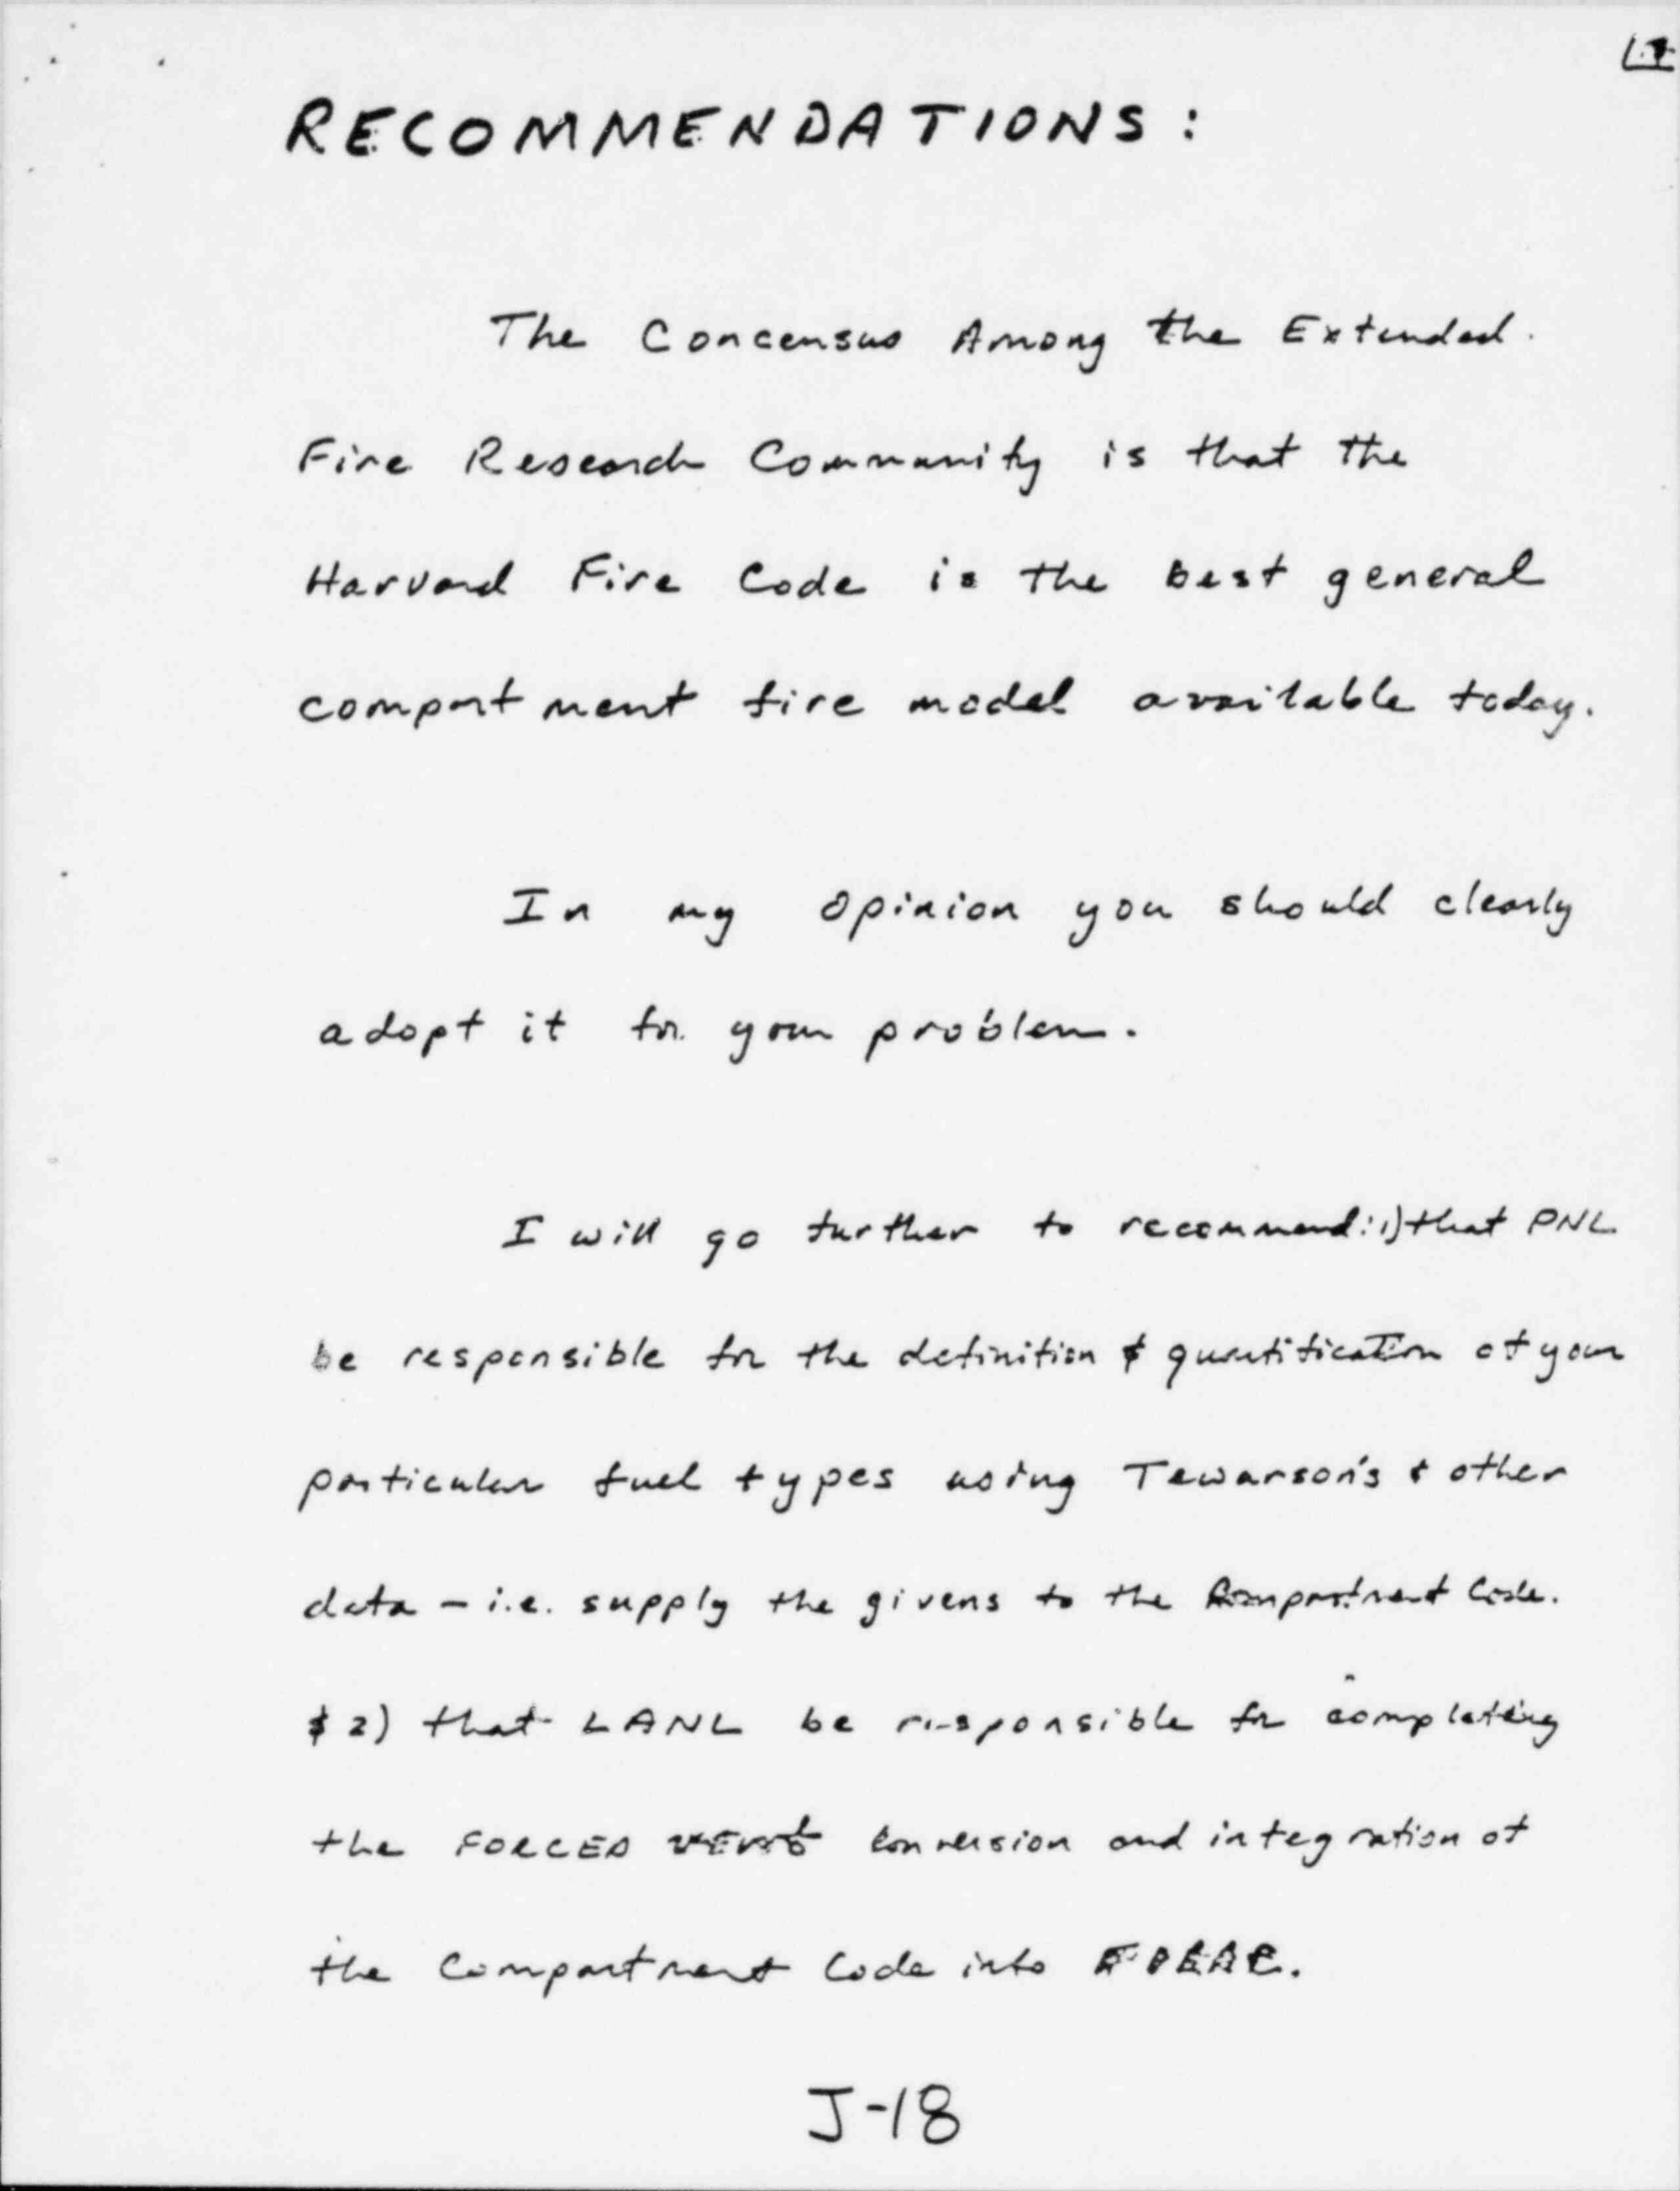 RECOMMENDATIONS:
The Concensus Among the Extended
Fire Research Community is that the
Harvard Fire Code is the best general
compartment fire model available today.
In my opinion you should clearly
adopt it for your problem.
I will go further to recommend: 1) that PNL
be responsible for the definition & quantification of your
particular fuel types using Tewarson's & other
data - i.e. supply the givens to the Compartment Code.
& 2) that LANL be responsible for completing
the FORCED VENT conversion and integration of
the Compartment Code into
J-18